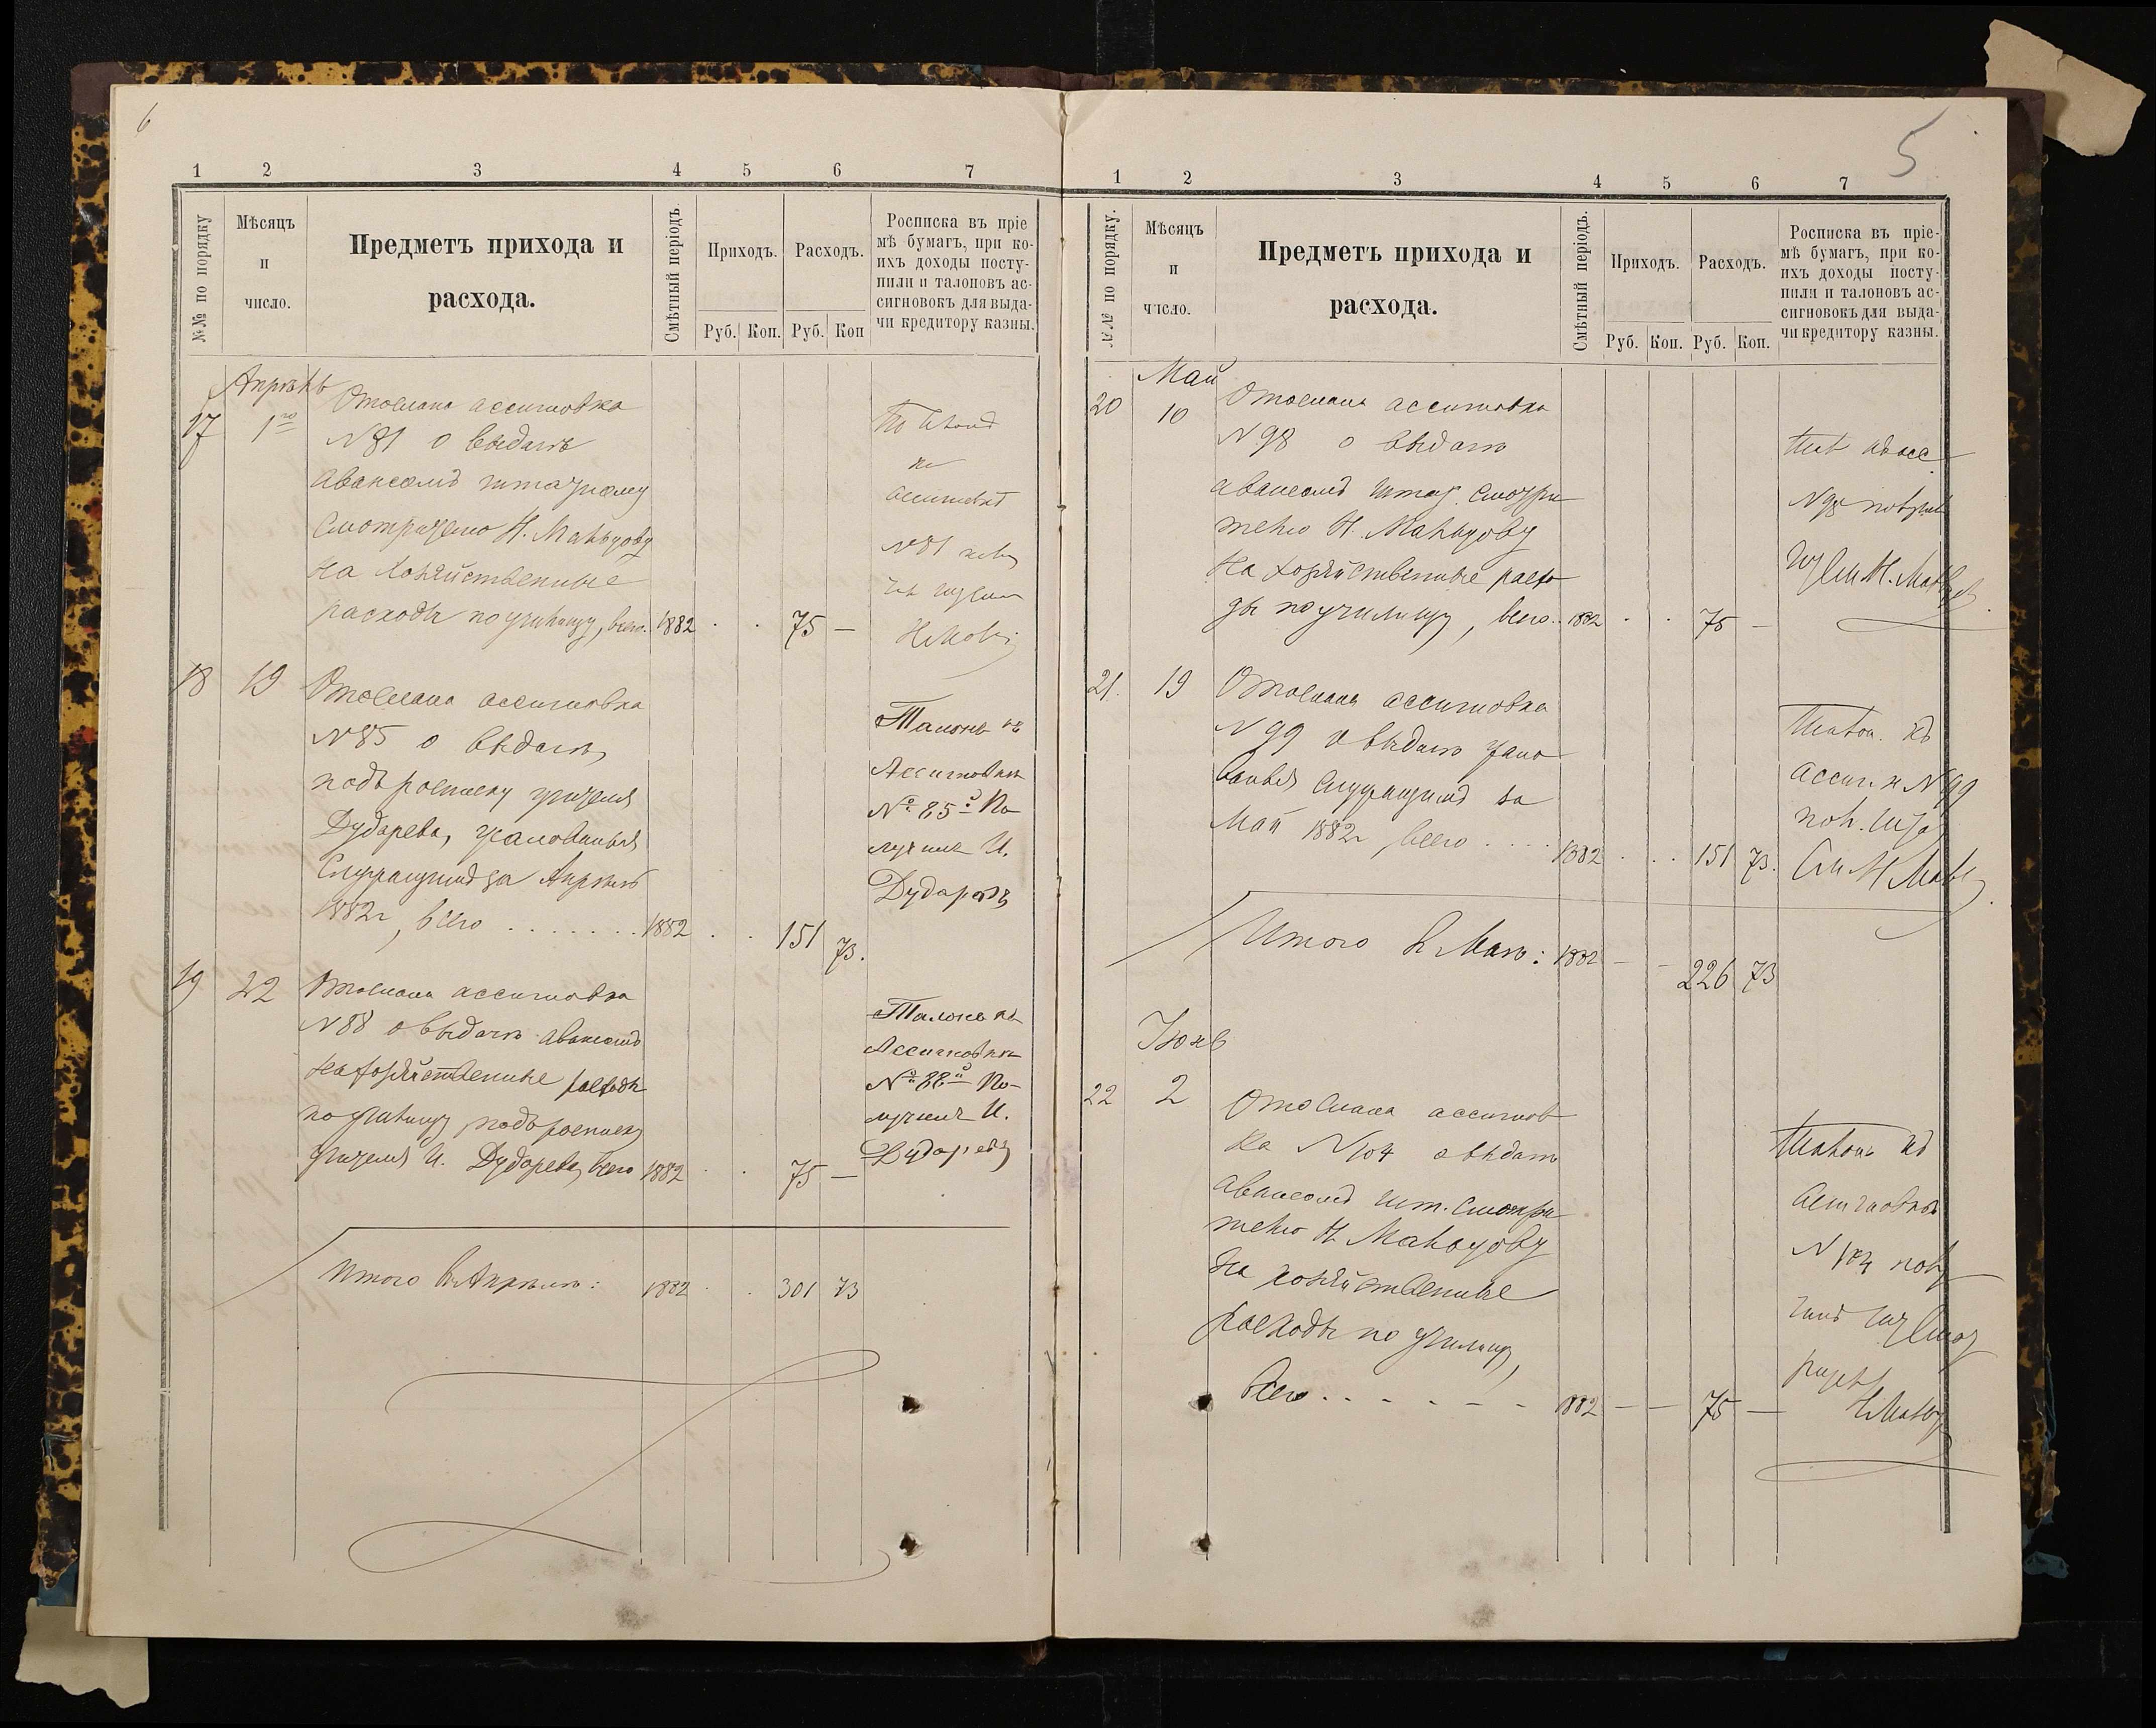 6
1 2 3 4 5 6 7
№№ по порядку
Мѣсяцъ
и
число.
Предметъ прихода и
расхода.
Смѣтный періодъ.
Приходъ. Расходъ.
Руб. Коп. Руб. Коп
Росписка въ пріе
мѣ бумагъ, при ко-
ихъ доходы посту-
пили и талоновъ ас-
сигновокъ для выда-
чи кредитору казны.
Апрѣль
17 1го Отослана ассигновка
N 81 о выдачѣ
авансомъ штатному
смотрителю Н.
на хозяйственные
расходы по училищу, всего. 1882 . . 75 —
N 81
18 19 Отослана ассигновка
N 85 о выдачѣ,
подъ росписку учителя
Дударева, жалованья
служащимъ за Апрѣль
1882 г, всего . . . . . . . 1882 . . 151 73.
Талонъ къ
Ассигновкѣ
№ 85й По-
лучилъ И.
Дударевъ
19 22 Отослана ассигновка
N 88 о выдачѣ авансомъ
на хозяйственные расходы
по училищу подъ росписку
учителя И. Дударева, всего 1882 . . 75 —
Талонъ къ
Ассигновкѣ
№ 88й По-
лучилъ И.
Дударевъ
Итого въ Апрѣлѣ: 1882 . . 301 73
5
1 2 3 4 5 6 7
№№ по порядку.
Мѣсяцъ
и
число.
Предметъ прихода и
расхода.
Смѣтный періодъ.
Приходъ. Расходъ.
Руб. Коп. Руб. Коп.
Росписка въ пріе-
мѣ бумагъ, при ко-
ихъ доходы посту-
пили и талоновъ ас-
сигновокъ для выда-
чи кредитору казны.
Май
20 10 Отослана ассигновка
N 98 о выдачѣ
авансомъ штат. смотри
телю Н.
на хозяйственные расхо
ды по училищу, всего.. 1882 . . 75 —
N 98
21. 19 Отослана ассигновка
N 99 о выдачѣ жало
ванья служащимъ за
Май 1882 г, всего . . . . 1882 . . . 151 73.
N 99
Итого въ Маѣ: 1882 — — 226 73
Іюнь
22 2 Отослана ассигнов
ка N 104 о выдачѣ
авансомъ шт. смотри
телю Н.
на хозяйственные
расходы по училищу,
всего . . - - - - 1882 — — 75 —
Талонъ къ
Ассигновкѣ
N 104